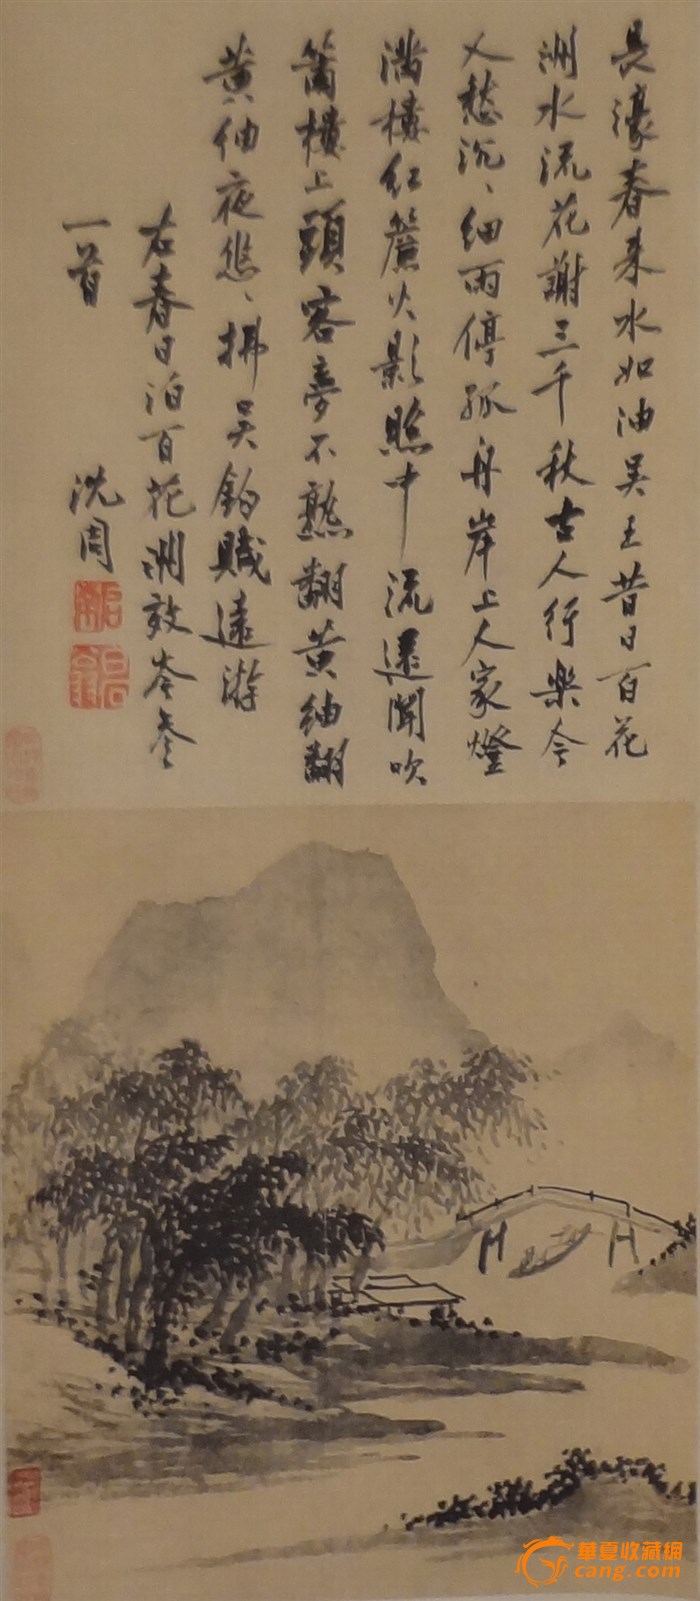 長濠春来水如油吴王昔日百花
洲水流花謝三千秋古人行樂今
人愁沉、細雨停孤舟岸上人家燈
滿樓紅簾火影照中流還聞吹
簫樓上頭客夢不熟翻黃紬翻
黃紬夜悠、拂吴鉤賦遠游
右春日泊百花洲效岑參
一首
沈周
華夏收藏網
cang.com